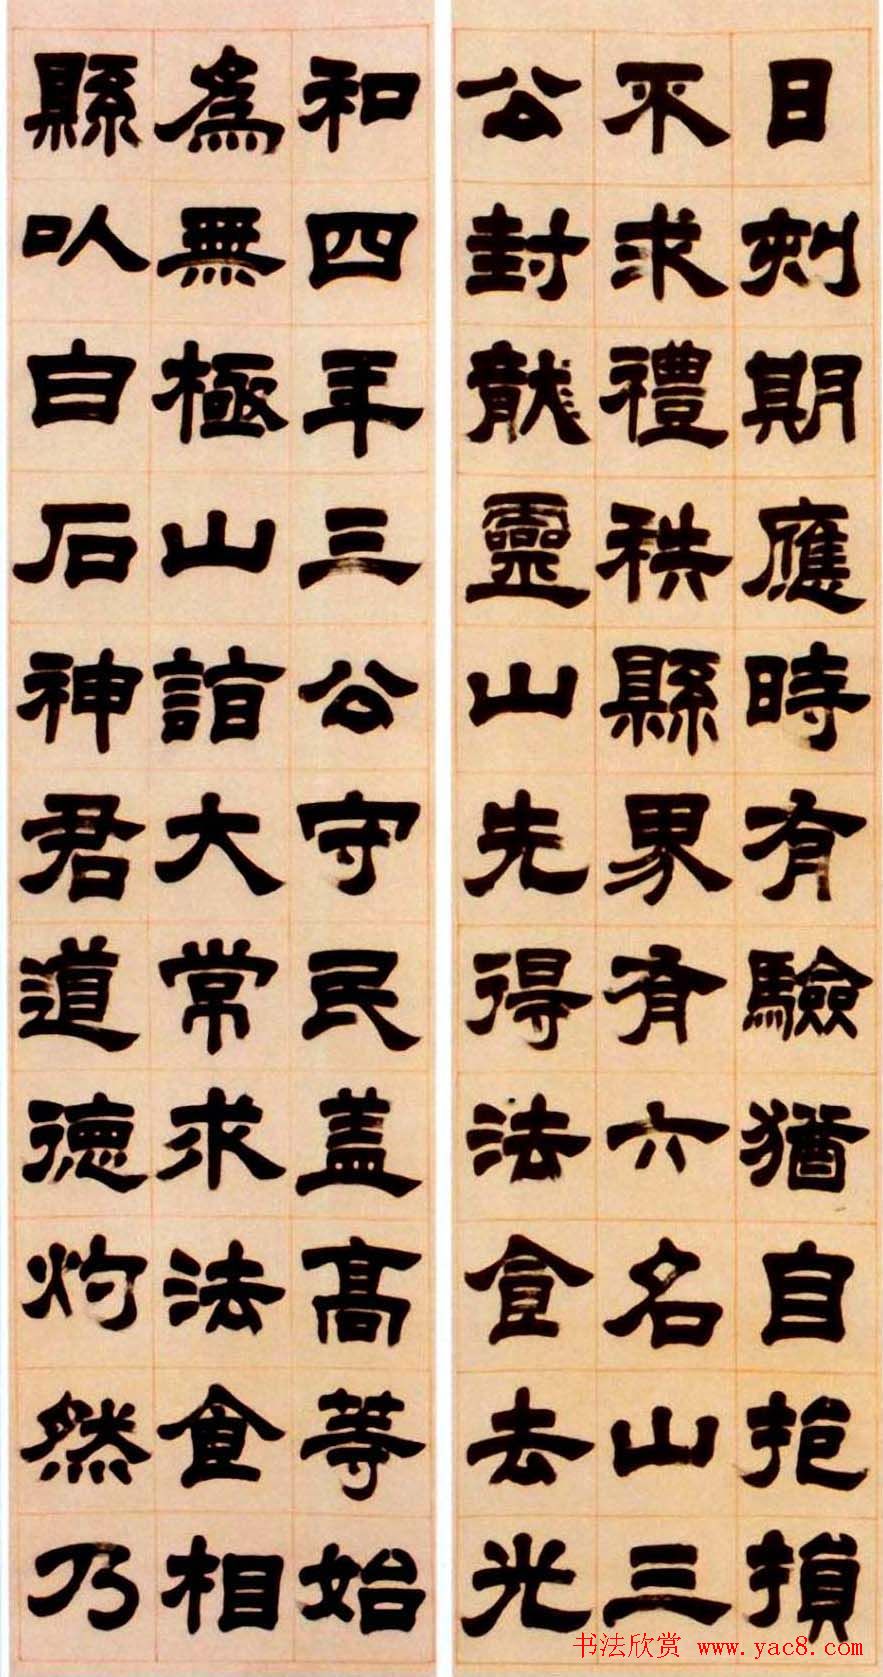 日刻期應時有驗猶自抱損
不求禮秩縣界有六名山三
公封龍靈山先得法食去光
和四年三公守民蓋高等始
為無極山詣大常求法食相
縣以白石神君道德灼然乃
书法欣赏 www.yac8.com